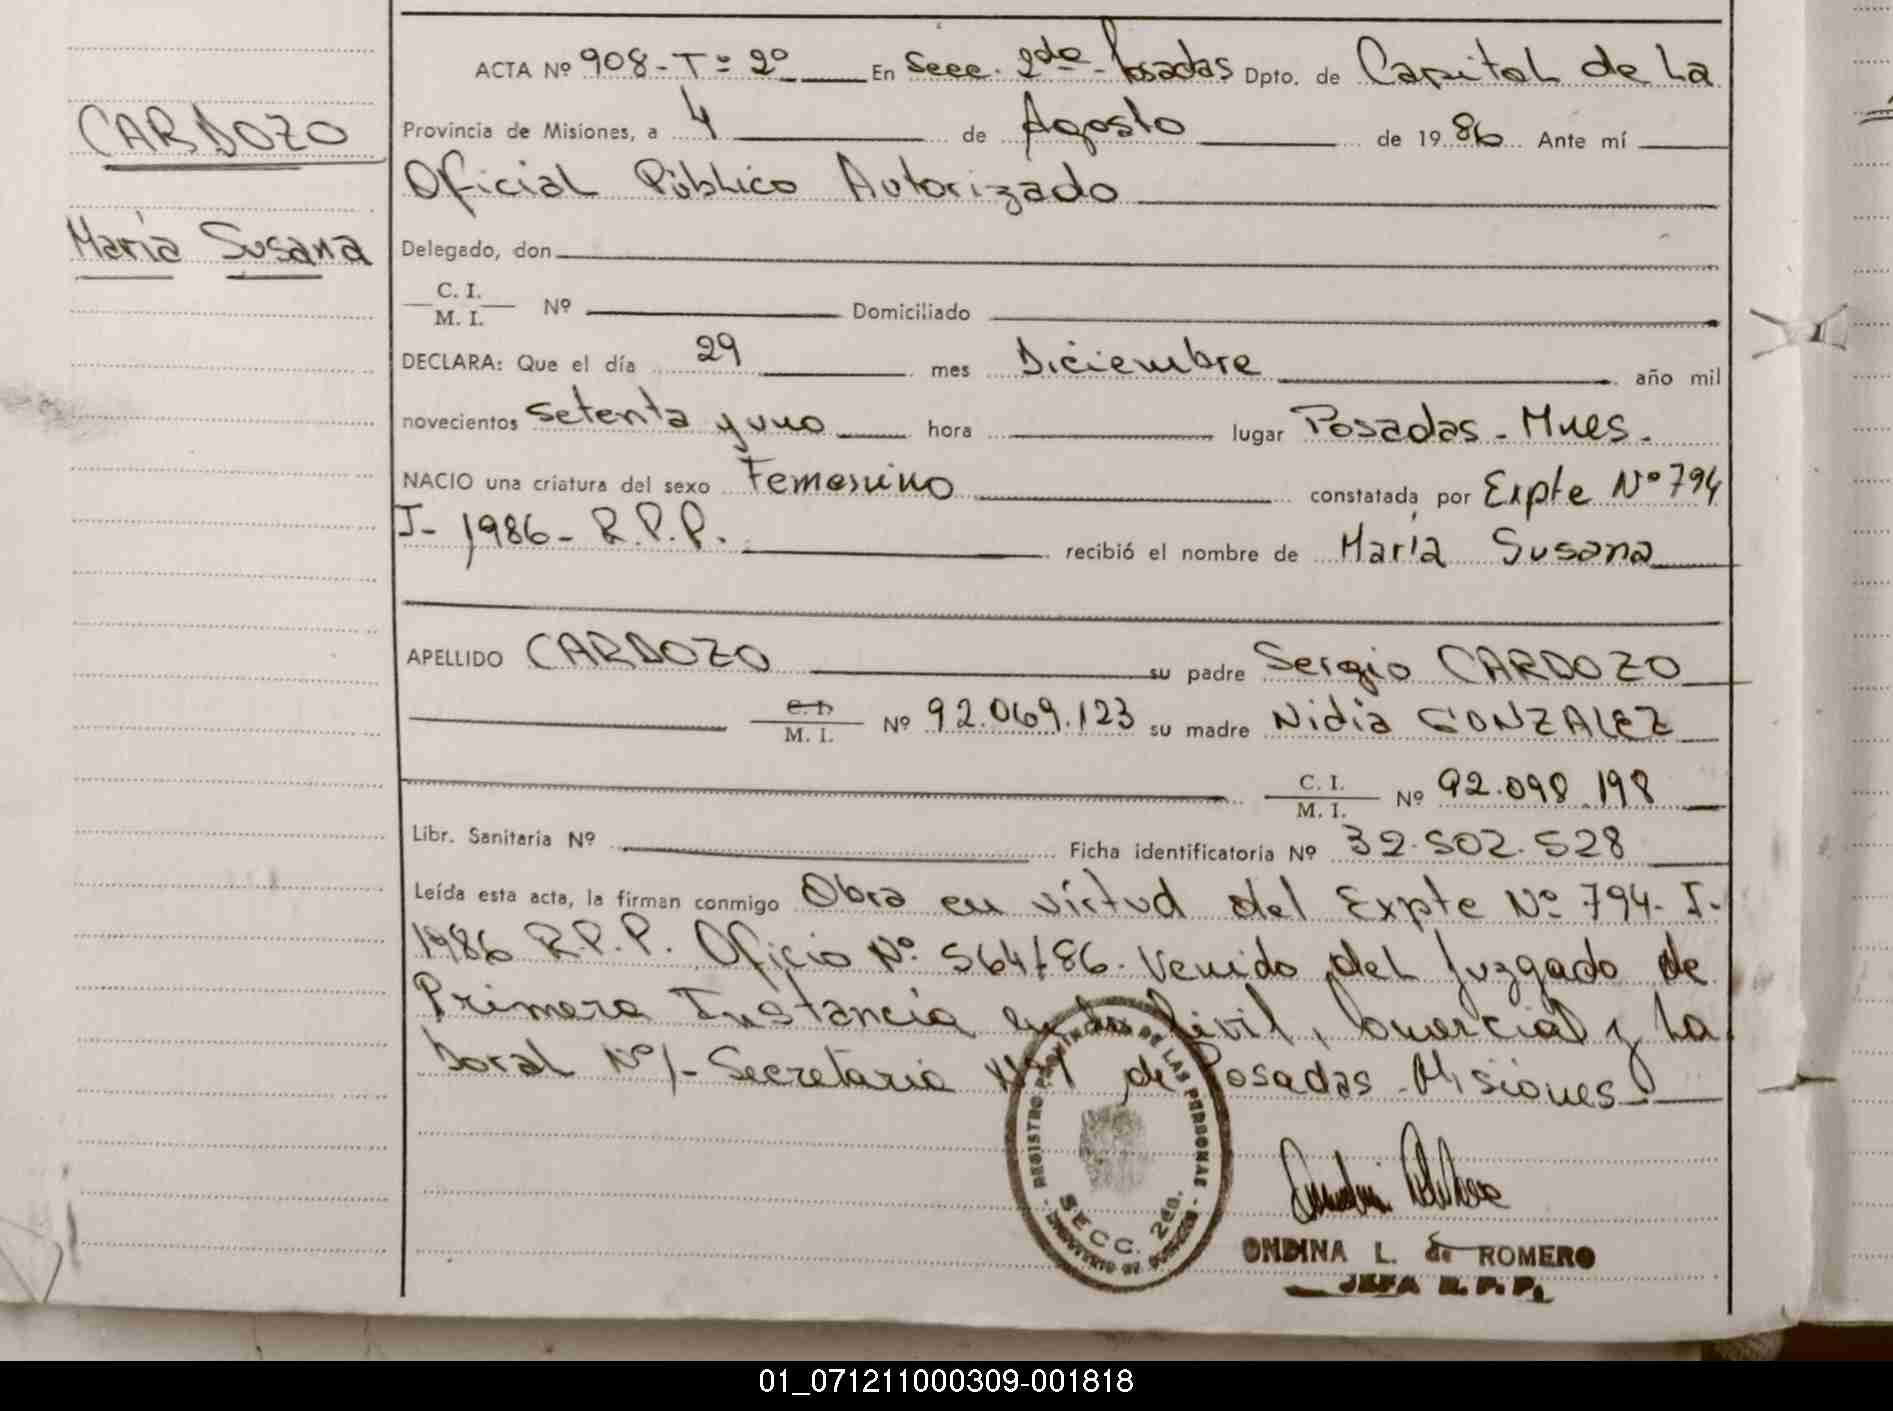 ACTA Nº 908-Tº 2º En Secc. 2da Posadas Dpto. de Capital de La
CARDOZO
Provincia de Misiones, a 4 de Agosto de 1986 Ante mí
Oficial Público Autorizado
María Susana
Delegado, don
C. I.
M. I. Nº Domiciliado
DECLARA: Que el día 29 mes Diciembre año mil
novecientos setenta y uno hora lugar Posadas - Mnes.
NACIO una criatura del sexo Femenino constatada por Expte Nº 794
I- 1986- R.P.P. recibió el nombre de María Susana
APELLIDO CARDOZO su padre Sergio CARDOZO
C. I.
M. I. Nº 92.069.123 su madre Nidia GONZALEZ
C. I.
M. I. Nº 92.098.198
Libr. Sanitaria Nº Ficha identificatoria Nº 32.502.528
Leída esta acta, la firman conmigo Obra en virtud del Expte Nº 794- I-
1986 R.P.P. Oficio Nº 564/86. Venido del Juzgado de
Primera Instancia en lo Civil, Comercial y La
boral Nº 1- Secretaria de Posadas - Misiones
REGISTRO PROVINCIAL DE LAS PERSONAS
SECC. 2da.
MINISTERIO DE GOBIERNO
ONDINA L. de ROMERO
JEFA R. P. P.
01_071211000309-001818